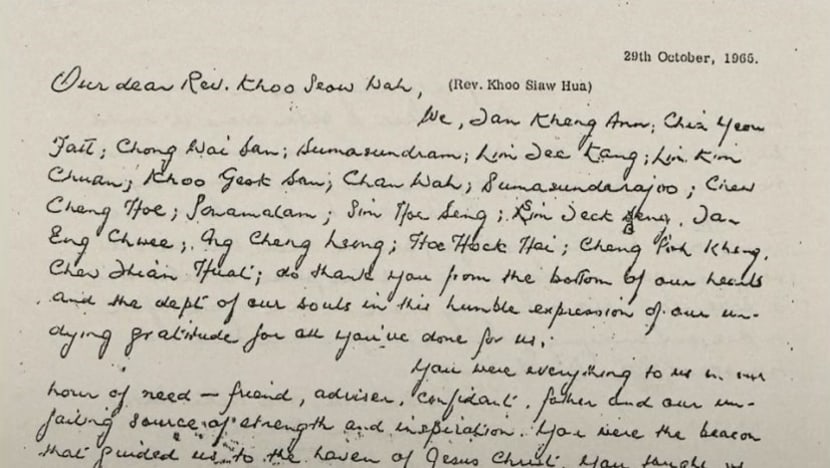 29th October, 1965.
Our dear Rev. Khoo Seow Wah, (Rev. Khoo Siaw Hua)
We, Tan Kheng Ann; Chia Yeow
Fatt; Chong Wai San; Sumasundram; Lim Tee Kang; Lim Kim
Chuan; Khoo Geok San; Chan Wah; Sumasundarajoo; Chew
Cheng Hoe; Sim Hoe Seng; Lim Teck Tan
Eng Chwee; Ng Cheng Leong; Hoe Hock Hai; Cheng Poh Kheng,
Chew Thian Huat; do thank you from the bottom of our hearts
and the dept of our souls in this humble expression of our un-
dying gratitude for all you've done for us.
You were everything to us in our
hour of need — friend, adviser, confidant, father and our un-
failing source of strength and inspiration. You were the beacon
that guided us to the haven of Jesus Christ. You taught us